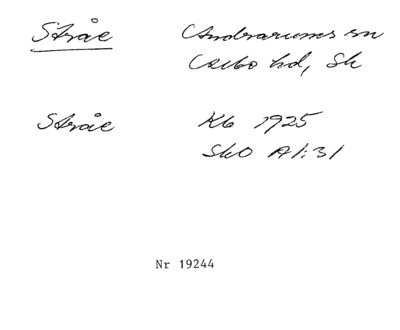 Stråe Andrarums sn
Albo hd, Sk
Stråe Kb 1925
SkO A1:31
Nr 19244